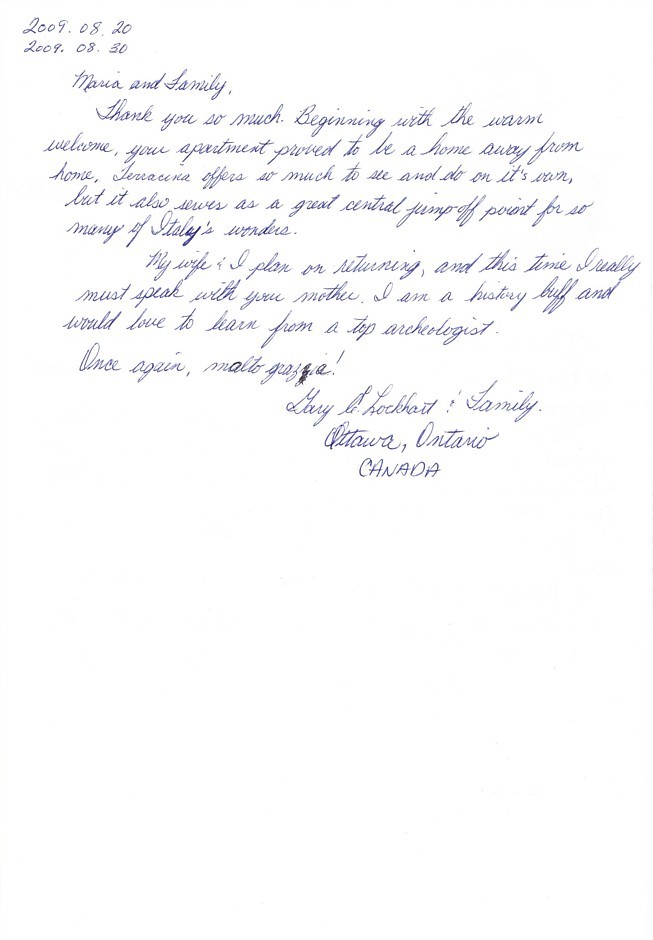 2009.08.20
2009.08.30
Maria and Family,
Thank you so much. Beginning with the warm
welcome, you apartment proved to be a home away from
home, Terracina offers so much to see and do on it's own,
but it also serves as a great central jump-off point for so
many of Italy's wonders.
My wife & I plan on returning, and this time I really
must speak with you mother. I am a history buff and
would love to learn from a top archeologist.
Once again, malto grazzia!
Gary Lockhart & Family.
Ottawa, Ontario
CANADA